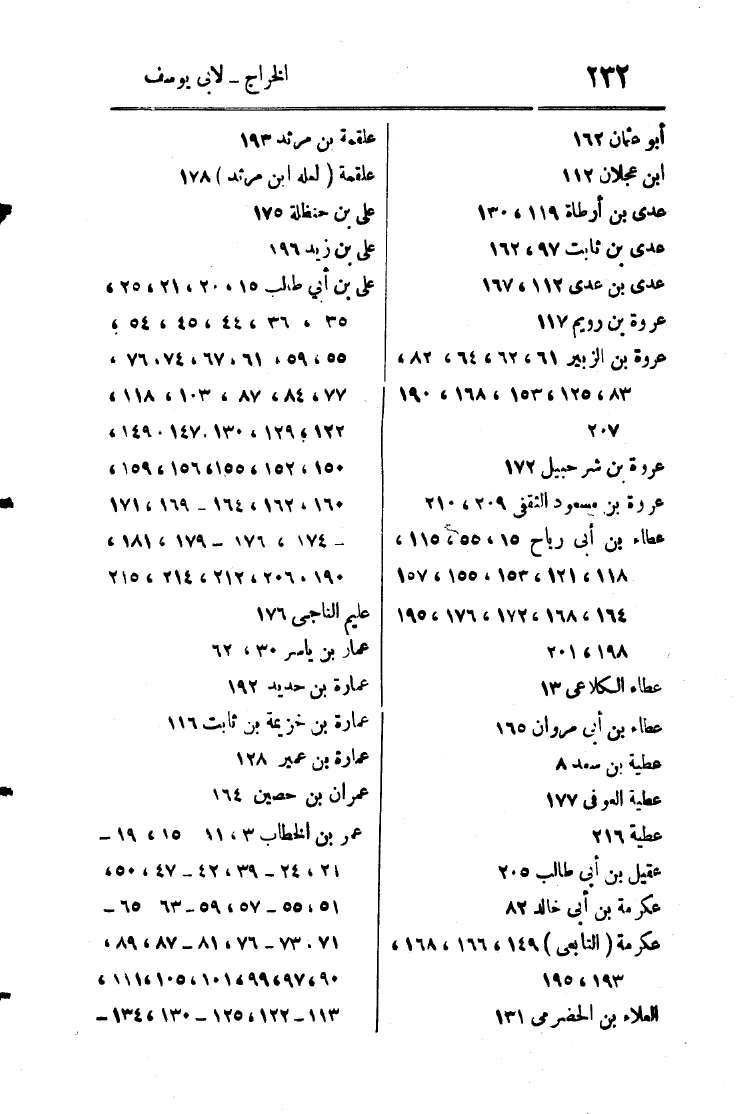 ٢٣٢
الخراج – لأبى يوسف
أبو عثمان ١٦٢
ابن عجلان ١١٢
عدى بن أرطاة ١١٩ ، ١٣٠
عدى بن ثابت ٩٧ ، ١٦٢
عدى بن عدى ١١٢ ، ١٦٧
عروة بن رويم ١١٧
عروة بن الزبير ٦١ ، ٦٢ ، ٦٤ ، ٨٢ ،
٨٣ ، ١٢٥ ، ١٥٣ ، ١٦٨ ، ١٩٠
٢٠٧
عروة بن شرحبيل ١٧٢
عروة بن مسعود الثقفى ٢٠٩ ، ٢١٠
عطاء بن أبى رباح ١٥ ، ٥٥ ، ١١٥ ،
١١٨ ، ١٢١ ، ١٥٣ ، ١٥٥ ، ١٥٧
١٦٤ ، ١٦٨ ، ١٧٢ ، ١٧٦ ، ١٩٥
١٩٨ ، ٢٠١
عطاء الكلاعى ١٣
عطاء بن أبى مروان ١٦٥
عطية بن سعد ٨
عطية العوفى ١٧٧
عطية ٢١٦
عقيل بن أبى طالب ٢٠٥
عكرمة بن أبى خالد ٨٢
عكرمة ( التابعى ) ١٤٩ ، ١٦٦ ، ١٦٨ ،
١٩٣ ، ١٩٥
العلاء بن الحضرمى ١٣١
علقمة بن مرثد ١٩٣
علقمة ( لعله ابن مرثد ) ١٧٨
على بن حنظلة ١٧٥
على بن زيد ١٩٦
على بن أبي طالب ١٥ ، ٢٠ ، ٢١ ، ٢٥ ،
٣٥ ، ٣٦ ، ٤٤ ، ٤٥ ، ٥٤ ،
٥٥ ، ٥٩ ، ٦١ ، ٦٧ ، ٧٤ ، ٧٦ ،
٧٧ ، ٨٤ ، ٨٧ ، ١٠٣ ، ١١٨ ،
١٢٢ ، ١٢٩ ، ١٣٠ ، ١٤٧ ، ١٤٩ ،
١٥٠ ، ١٥٢ ، ١٥٥ ، ١٥٦ ، ١٥٩ ،
١٦٠ ، ١٦٢ ، ١٦٤ – ١٦٩ ، ١٧١
– ١٧٤ ، ١٧٦ – ١٧٩ ، ١٨١ ،
١٩٠ ، ٢٠٦ ، ٢١٢ ، ٢١٤ ، ٢١٥
عليم الناجى ١٧٦
عمار بن ياسر ٣٠ ، ٦٢
عمارة بن حديد ١٩٢
عمارة بن خزيمة بن ثابت ١١٦
عمارة بن عمير ١٢٨
عمران بن حصين ١٦٤
عمر بن الخطاب ٣ ، ١١ ١٥ ، ١٩ –
٢١ ، ٢٤ – ٣٩ ، ٤٢ – ٤٧ ، ٥٠ ،
٥١ ، ٥٥ – ٥٧ ، ٥٩ – ٦٣ ٦٥ –
٧١ ، ٧٣ – ٧٦ ، ٨١ – ٨٧ ، ٨٩ ،
٩٠ ، ٩٧ ، ٩٩ ، ١٠١ ، ١٠٥ ، ١١١ ،
١١٣ – ١٢٢ ، ١٢٥ – ١٣٠ ، ١٣٤ –